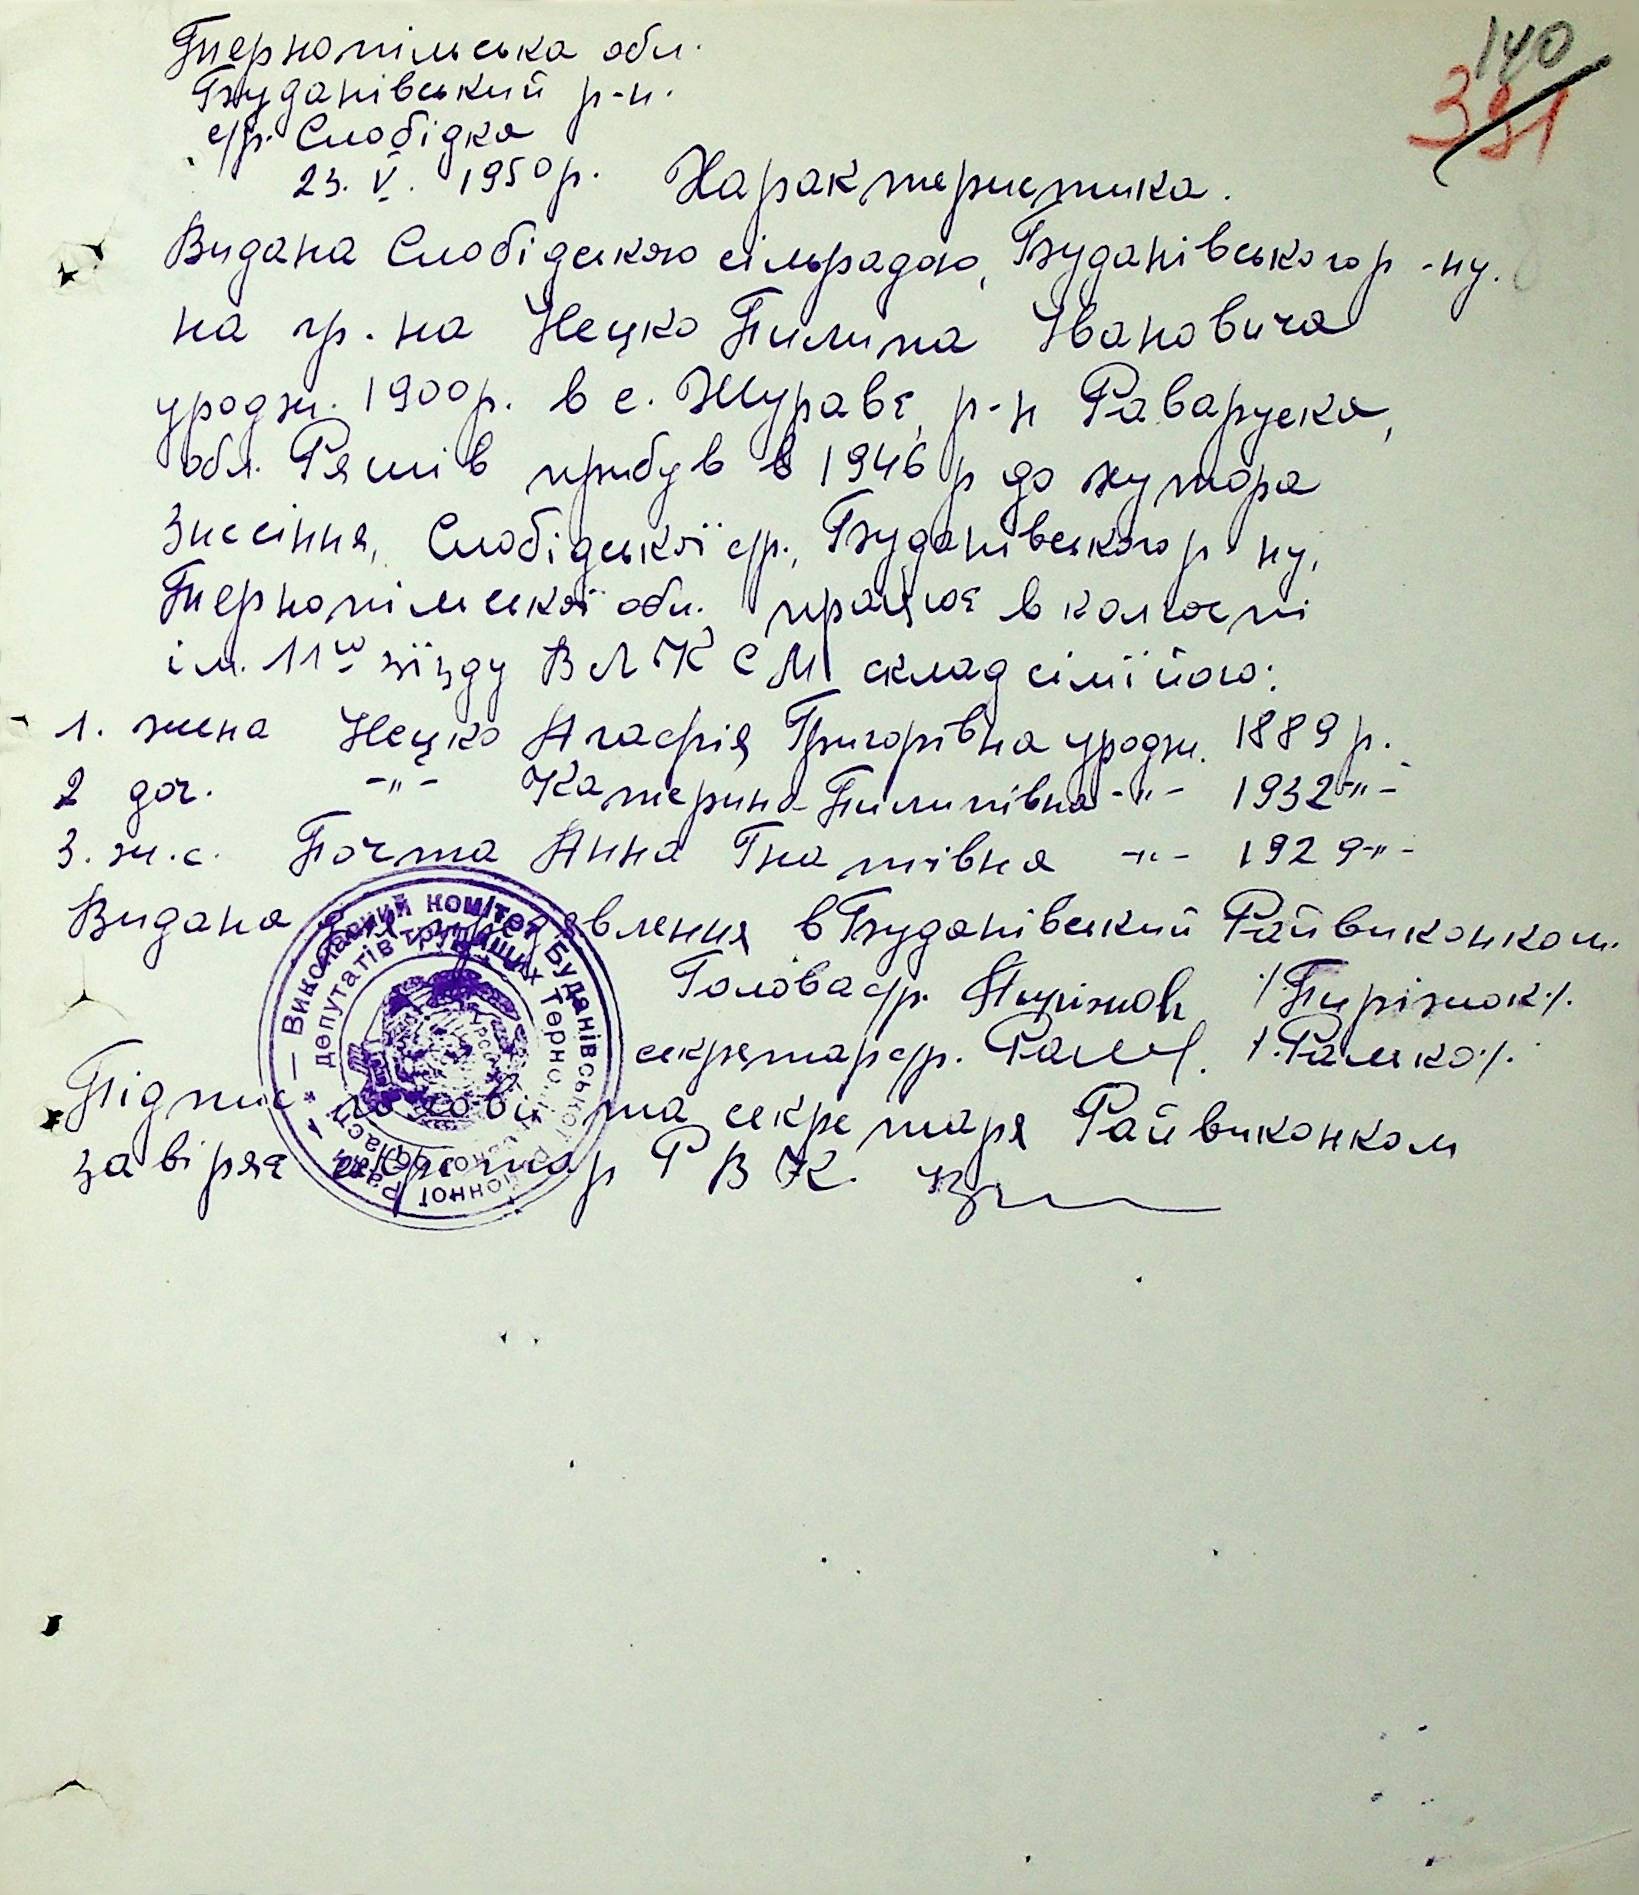 140
391
Тернопільська обл.
Буданівський р-н.
с/р. Слобідка
23. V. 1950 р. Характеристика.
Видана Слобідською сільрадою, Буданівського р-ну.
на гр. на Нецко Пилипа Івановича
уродж. 1900 р. в с. Журавє, р-н Раваруска,
обл. Ряшів прибув в 1946 р до хутора
Знесіння, Слобідської с/р., Буданівського р-ну,
Тернопільської обл. працює в колгоспі
ім. 11го зїзду ВЛКСМ склад сімї його:
1. жена Нецко Агафія Григорівна уродж. 1889 р.
2 доч. -"- Катерина Пилипівна -"- 1932 -"-
3. ж.с. Почта Анна Гнатівна -"- 1929 -"-
Видана для предявлення в Буданівський Райвиконком.
Голова с/р. Пиріжок /Пиріжок/.
секретар с/р. /Рамко/.
Підпис голови та секретаря Райвиконком
завіряє секретар РВК.
Виконавчий комітет Буданівської районної Ради
депутатів трудящих Тернопільської області